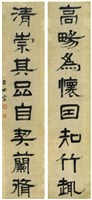 高畅為懷因知竹趣
清崇其品自契蘭脩